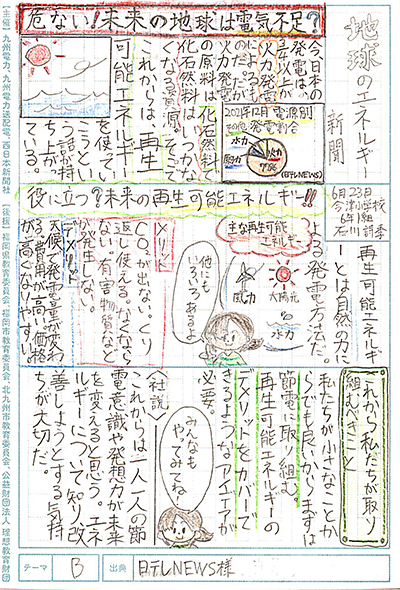 地球のエネルギー新聞
6月23日
今津小学校
6年1組
石川 詩季
危ない!未来の地球は電気不足?
今日本の
発電は、
3/4以上が
火力発電
によるも
のだ。だが
火力発電
の原料は化石燃料と
化石燃料はいつかな
くなる資源。そこで
これからは、再生
可能エネルギー
を使って
いこうとい
う話が持
ち上がっ
ている。
2021年12月電源別
発電割合
その他
水力
風力
火力
78%
(日テレNEWS)
役に立つ?未来の再生可能エネルギー!!
再生可能エネルギ
ーとは自然の力に
よる発電方法だ。
主な再生可能
エネルギー
風力
太陽光
水力
他にも
いろいろあるよ
メリット
CO2が出ない。くり
返し使える。なくなら
ない。有害物質など
が発生しない。
デメリット
天候で発電量が変わ
る。費用が高い。価格
が高くなりやすい。
これから私たちが取り
組むべきこと
私たちが小さなことか
らでも良いからまずは
節電に取り組む。
再生可能エネルギーの
デメリットをカバーで
きるようなアイデアが
必要。
みんなも
やってみてね!
〈社説〉
これからは一人一人の節
電意識や発想力が未来
を変えると思う。エネ
ルギーについて知り改
善しようとする気持
ちが大切だ。
テーマ
B
出典
日テレNEWS様
【主催】九州電力、九州電力送配電、西日本新聞社 【後援】福岡県教育委員会、福岡市教育委員会、北九州市教育委員会、公益財団法人 理想教育財団